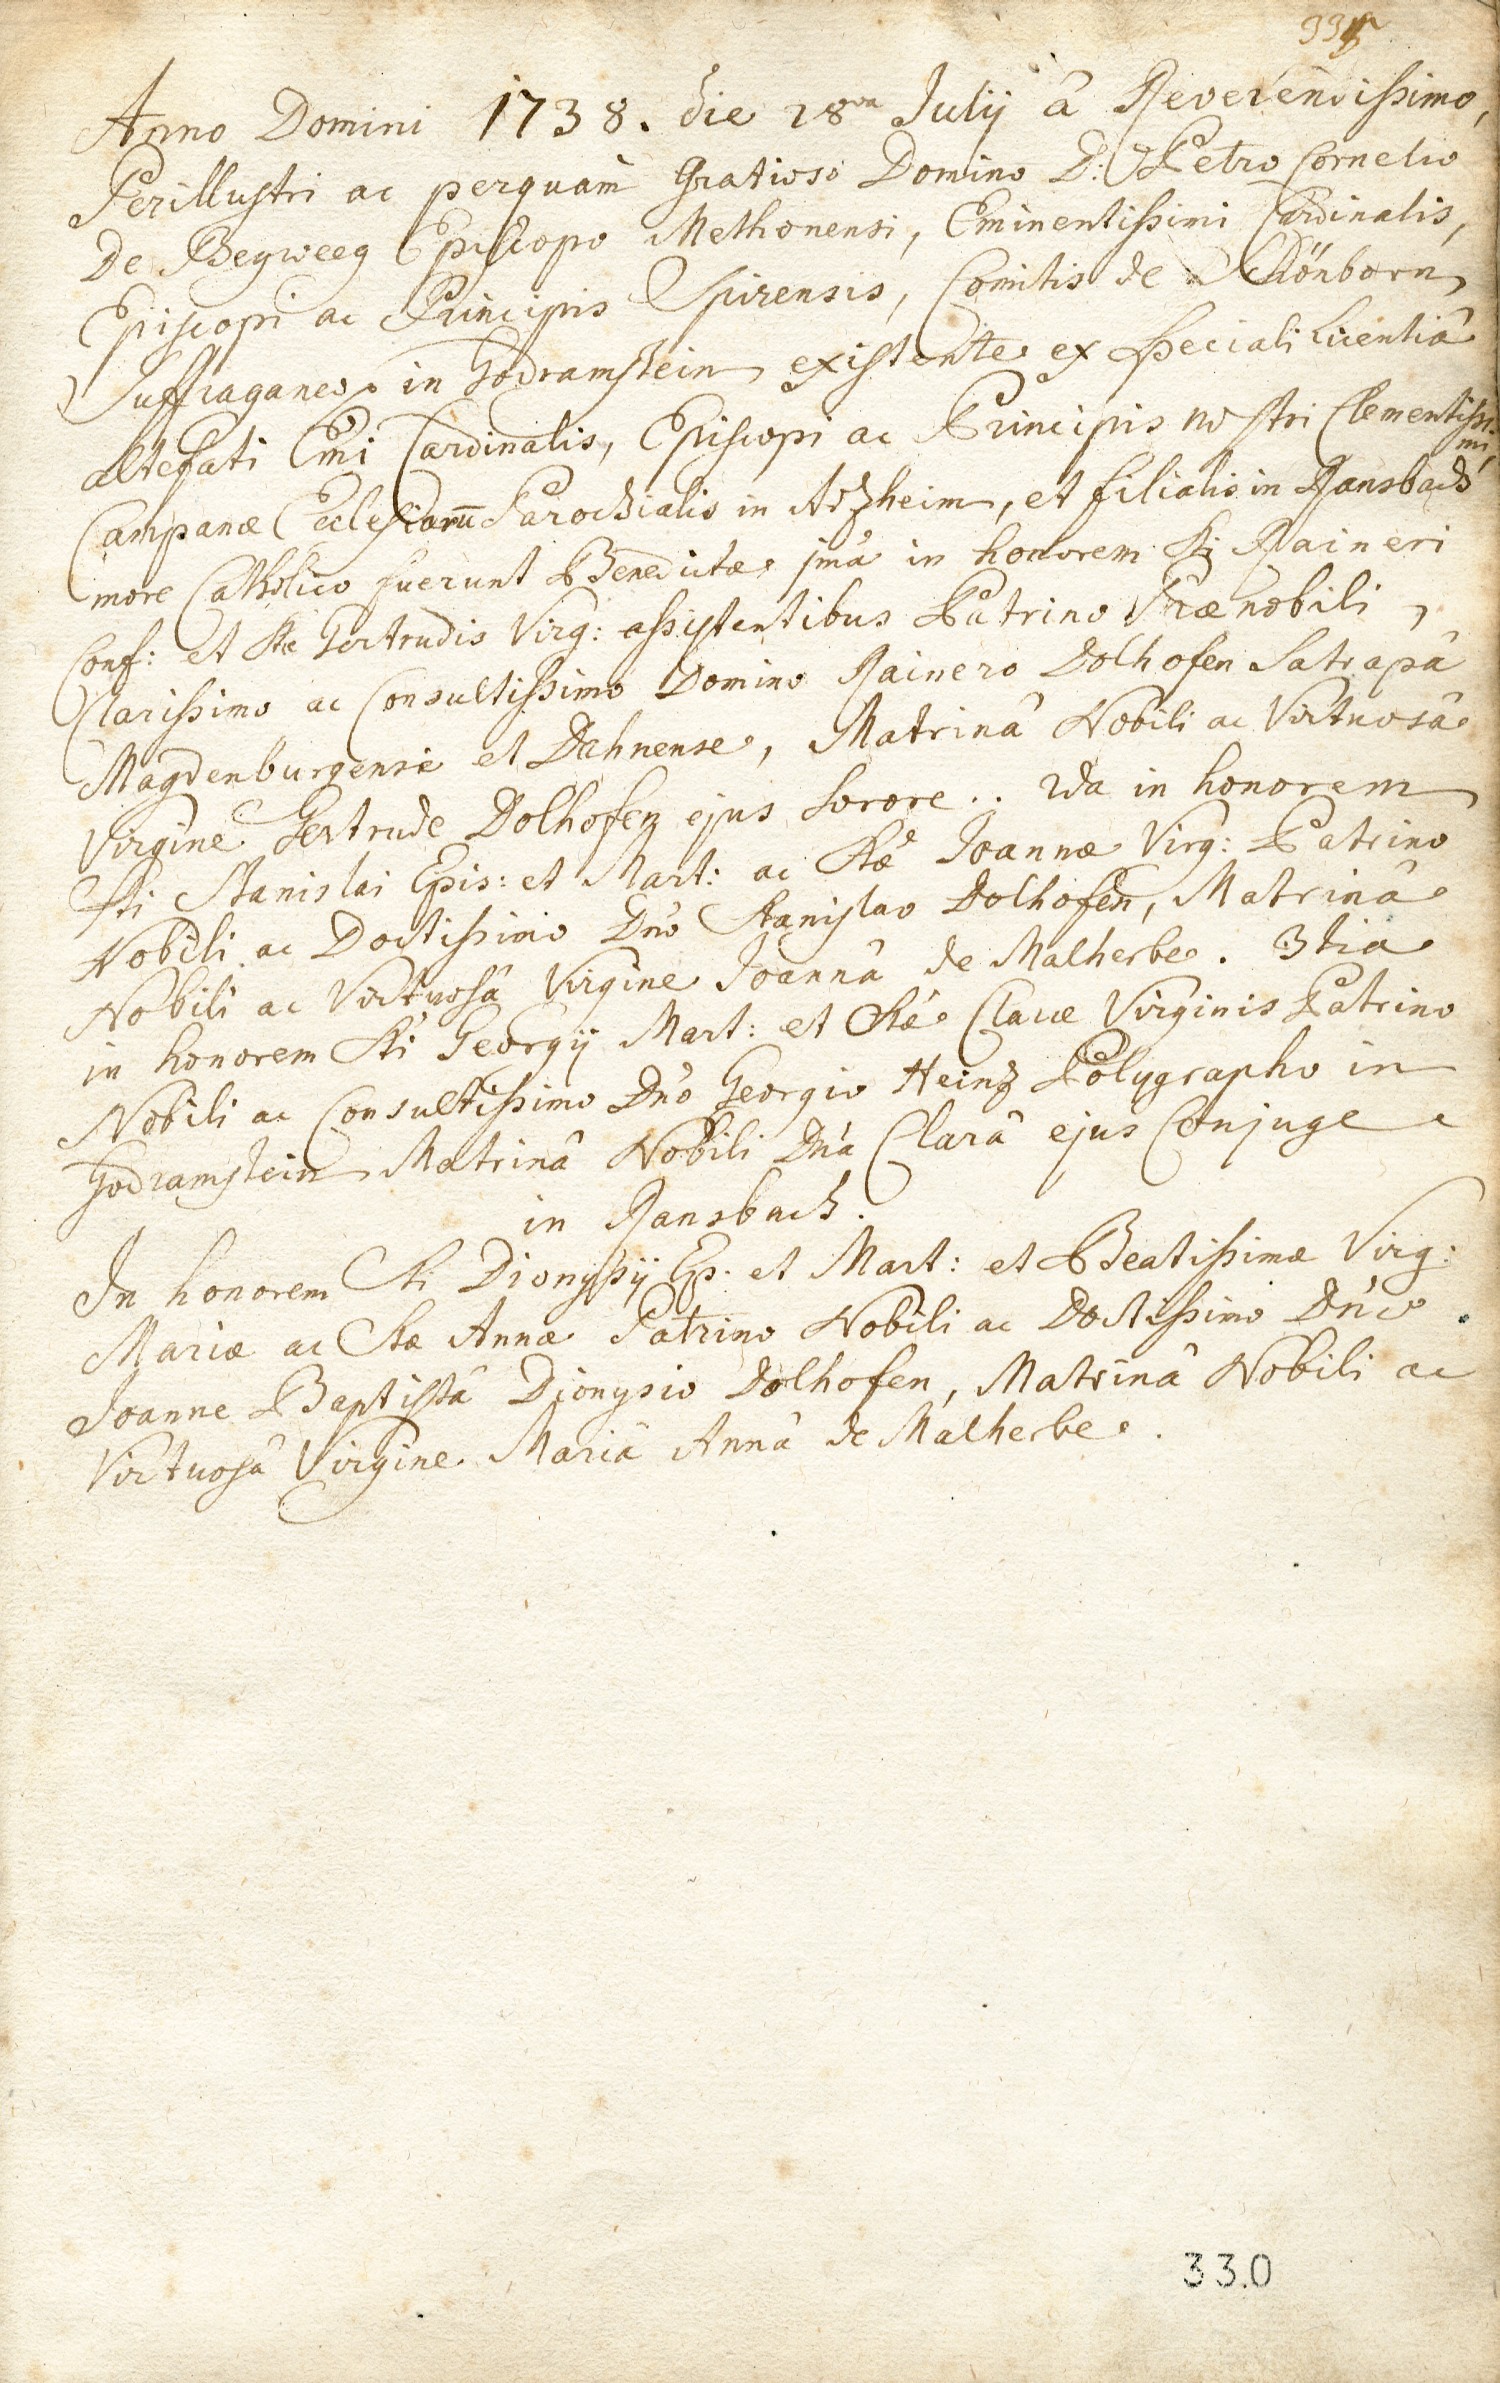 Anno Domini 1738. die 28va Julij â Reverendissimo,
Perillustri ac perquàm Gratioso Domino D: Petro Cornelio
De Beyweeg Episcopo Methonensi, Eminentissimi Cardinalis,
Episcopi ac Principis Spirensis, Comitis de Schönborn
Suffraganeo in Godramstein existente ex speciali licentiâ
altefati Emi Cardinalis, Episcopi ac Principis nostri Clementissi-
mi,
Campanæ Ecclesiarū Parochialis in Arzheim, et filialis in Ransbach
more Catholico fuerunt Benedictæ, jma in honorem Sti Raineri
Conf: et Stæ Gertrudis Virg: assistentibus Patrino Prænobili,
Clarissimo ac Consultissimo Domino Rainero Dolhofen Satrapâ
Magdenburgensi et Dahnense, Matrinâ Nobili ac Virtuosâ
Virgine Gertrude Dolhofen ejus Sorore.. 2da in honorem
Sti Stanislai Epis: et Mart: ac Stæ Joannæ Virg: Patrino
Nobili ac Doctissimo Dno Stanislao Dolhofen, Matrinâ
Nobili ac Virtuosâ Virgine Joannâ de Malherbe. 3tia
in honorem Sti Georgij Mart: et Stæ Claræ Virginis Patrino
Nobili ac Consultissimo Dno Georgio Heinz Polygrapho in
Godramstein Matrinâ Nobili Dna Clarâ ejus Conjuge
in Ransbach.
In honorem Sti Dionysij Ep. et Mart: et Beatissimæ Virg:
Mariæ ac Stæ Annæ Patrino Nobili ac Doctissimo Dno
Joanne Baptistâ Dionysio Dolhofen, Matrinâ Nobili ac
Virtuosâ Virgine Mariâ Annâ de Malherbe.
330